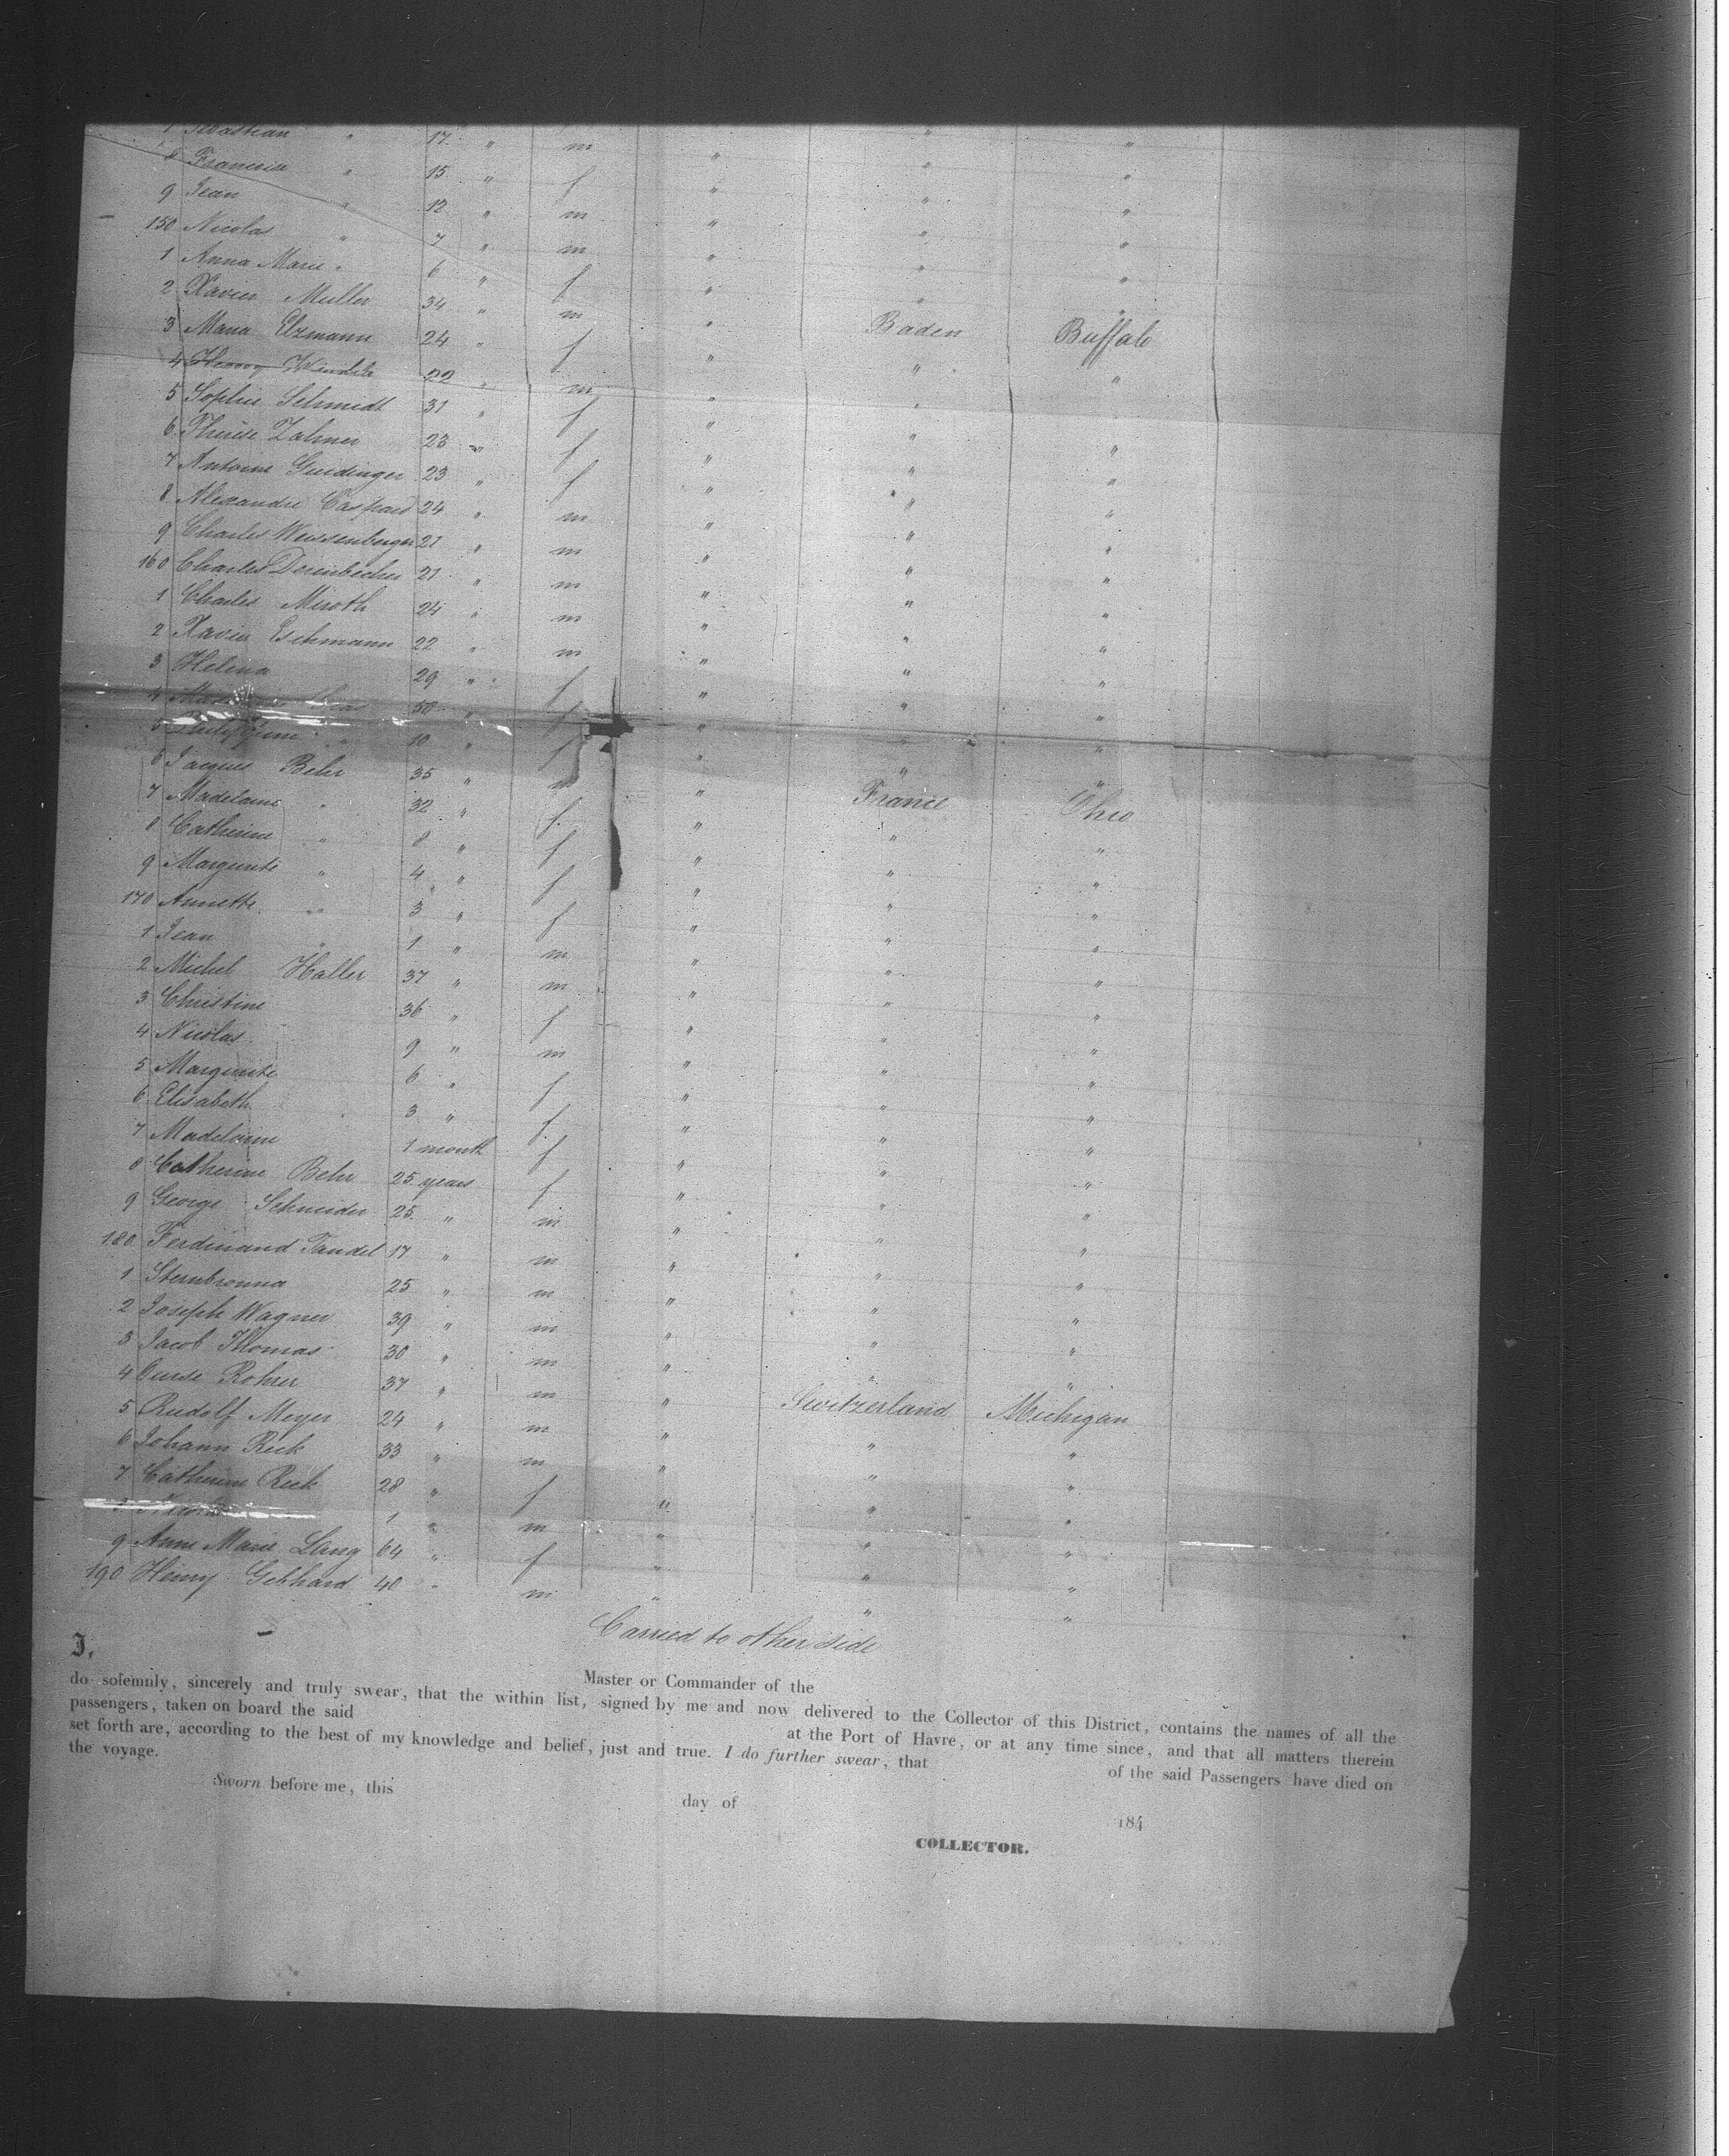 Sebastian " 17 " m " " "
8 Francisca " 15 " f " " "
9 Jean " 12 " m " " "
150 Nicolas " 7 " m " " "
1 Anna Marie " 6 " f " " "
2 Xavier Muller 34 " m " Baden Buffalo
3 Maria 24 " f " " "
4 22 " m " " "
5 Sophie Schmidt 31 " f " " "
6 Thérèse Zahner 23 " f " " "
7 Antoine 23 " f " " "
8 Alexandre Caspard 24 " m " " "
9 Charles Weissenberger 21 " m " " "
160 Charles 21 " m " " "
1 Charles Miroth 24 " m " " "
2 Xavier Eschmann 22 " m " " "
3 Helena 29 " f " " "
4 50 " f " " "
5 Philippine " 10 " f " " "
6 Jacques Behr 35 " m " France Ohio
7 Madelaine " 32 " f " " "
8 Catherine " 8 " f " " "
9 Marguerite " 4 " f " " "
170 Annette " 3 " f " " "
1 Jean " 1 " m " " "
2 Michel Haller 37 " m " " "
3 Christine 36 " f " " "
4 Nicolas 9 " m " " "
5 Marguerite 6 " f " " "
6 Elisabeth 3 " f " " "
7 Madelaine 1 month f " " "
8 Catherine Behr 25 years f " " "
9 George Schneider 25 " m " " "
180 Ferdinand Tandel 17 " m " " "
1 Sternbronna 25 " m " " "
2 Joseph Wagner 39 " m " " "
3 Jacob Thomas 30 " m " " "
4 Rohrer 37 " m " Switzerland Michigan
5 Rudolf Meyer 24 " m " " "
6 Johann Rick 33 " m " " "
7 Catherine Rick 28 " f " " "
1 " m " " "
9 Anne Marie Lang 64 " f " " "
190 Henry Gebhard 40 " m " " "
Carried to other side
I,
Master or Commander of the
do solemnly, sincerely and truly swear, that the within list, signed by me and now delivered to the Collector of this District, contains the names of all the
passengers, taken on board the said at the Port of Havre, or at any time since, and that all matters therein
set forth are, according to the best of my knowledge and belief, just and true. I do further swear, that of the said Passengers have died on
the voyage.
Sworn before me, this day of 184
COLLECTOR.